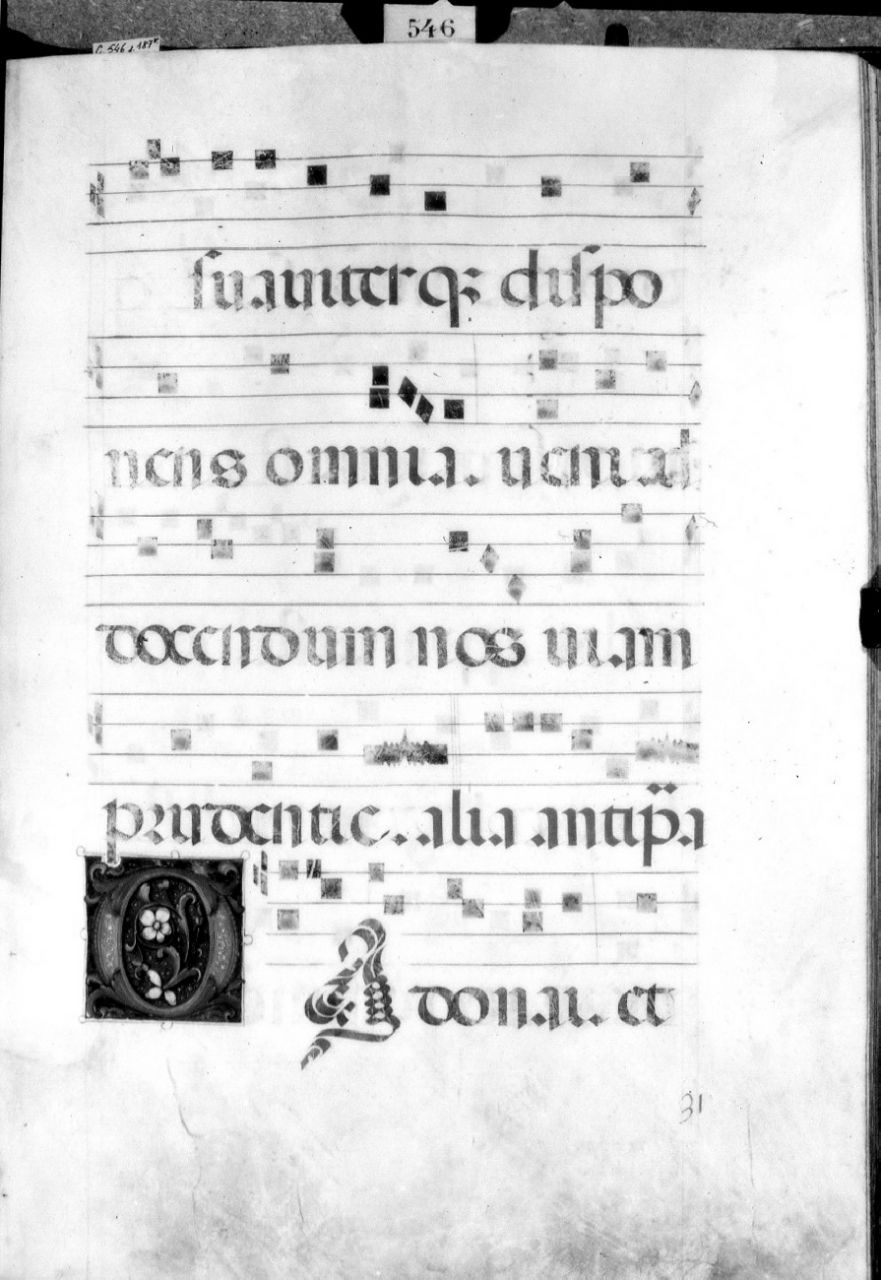 546
C. 546 c. 187r
suauiterq; dispo
nens omnia. ueni ad
docendum nos uiam
prudentie. alia antip̈a
O Adonai. et
31